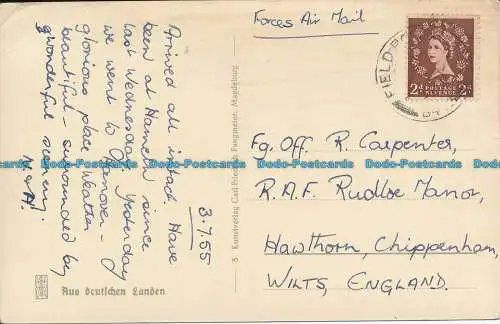 3.7.55
Arrived all intact. Have
been at Hameln since
last Wednesday. Yesterday
we went to Hanover -
glorious place. Weather
beautiful - surrounded by
wonderful scenery.
Aus deutschen Landen
8 Kunstverlag Carl Friedrich Fangmeier, Magdeburg
Forces Air Mail
FIELD PO
2d POSTAGE REVENUE 2d
Fg. Off R. Carpenter,
R.A.F. Rudloe Manor,
Hawthorn, Chippenham,
WILTS, ENGLAND.
Dodo-Postcards Dodo-Postcards Dodo-Postcards Dodo-Postcards Dodo-Postcards